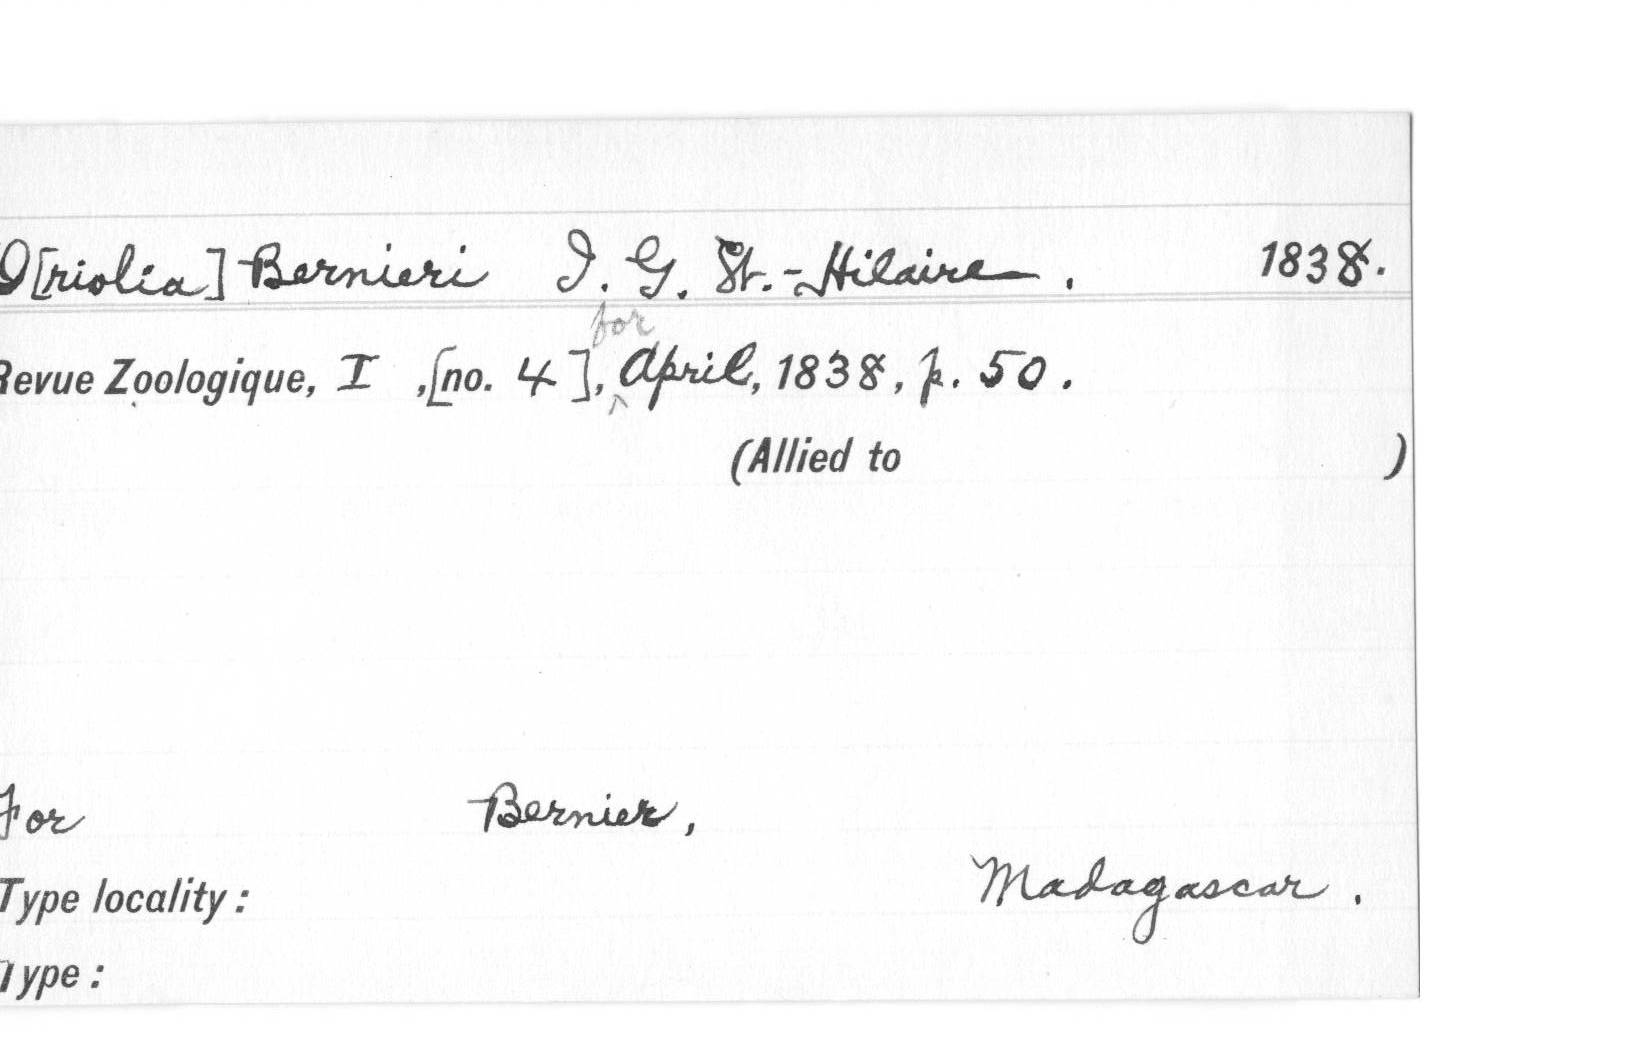 O[riolia] Bernieri I. G. St.-Hilaire. 1838.
for
Revue Zoologique, I ,[no. 4], ^ April, 1838, p. 50.
(Allied to )
For Bernier,
Madagascar.
Type locality:
Type: